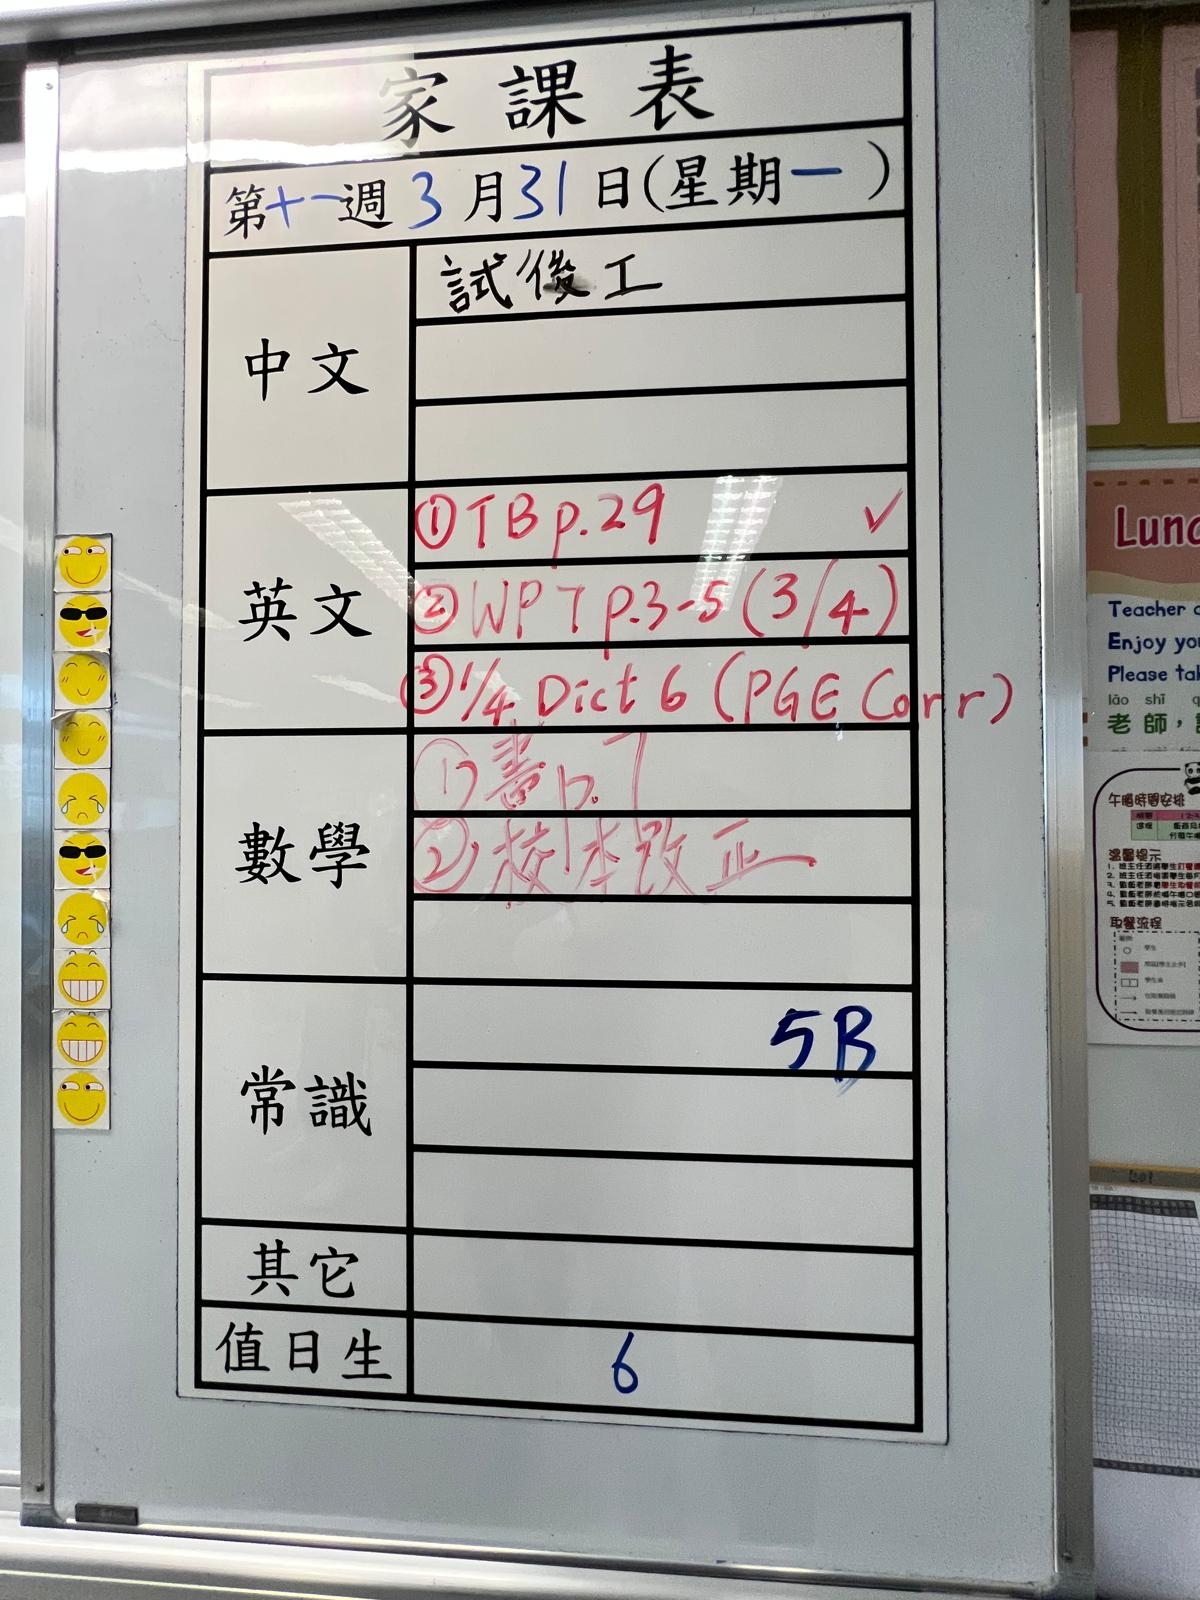 家課表
第十一週3月31日(星期一)
中文
試後工
英文
①TB p.29 ✓
②WPT p.3-5 (3/4)
③1/4 Dict 6 (PGE Corr)
數學
①書p.7
②校本改正
常識
5B
其它
值日生
6
Lunc
Teacher
Enjoy you
Please tak
lǎo shī
老師，
午膳時間安排
溫馨提示
取餐流程
學生